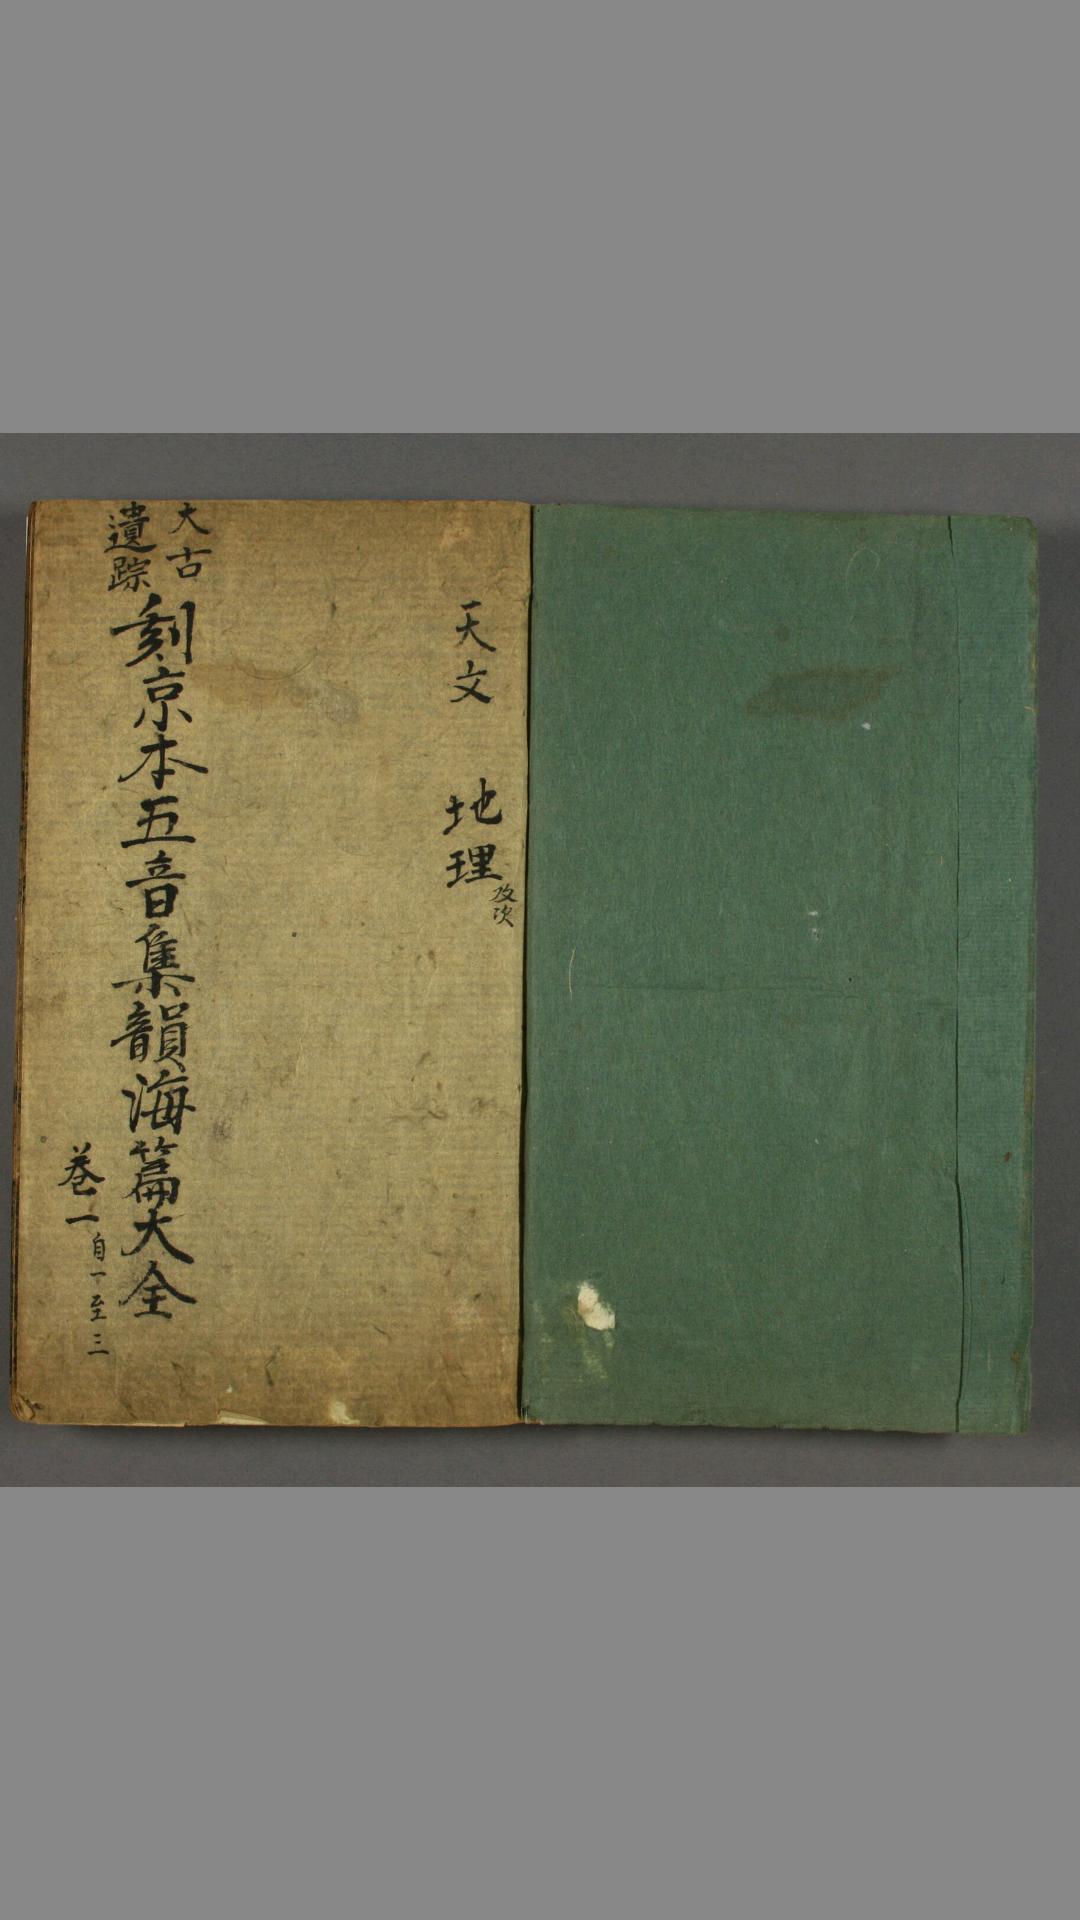 天文　地理
大古
遺踪
刻京本五音集韻海篇大全
卷一
自一至三